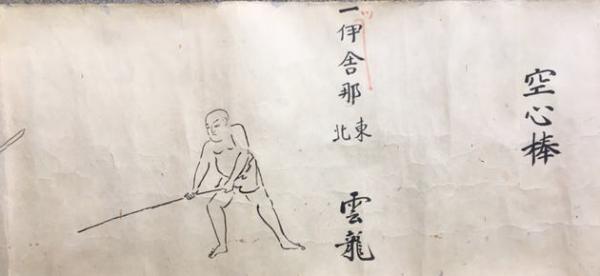 空心棒
一伊舎那
東
北
雲龍